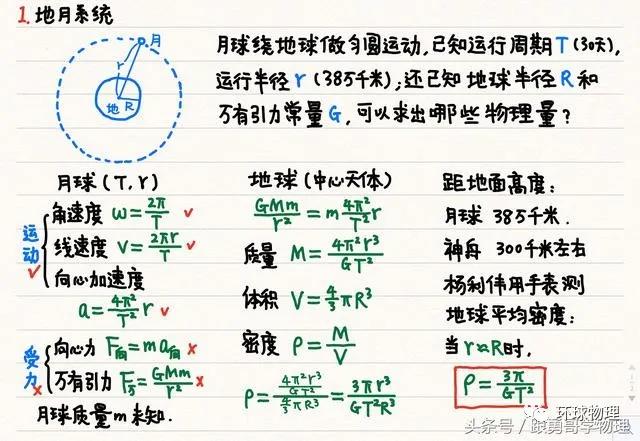 1.地月系统
月
r
地 R
月球绕地球做匀圆运动,已知运行周期T(30天),
运行半径r(38万千米);还已知地球半径R和
万有引力常量G,可以求出哪些物理量?
月球(T,r)
运动
角速度 ω=2π/T ✓
线速度 v=2πr/T ✓
✓
向心加速度
a=4π²/T² r ✓
受力
向心力 F向=ma向 ×
×
万有引力 F万=GMm/r² ×
月球质量m未知.
地球(中心天体)
GMm/r²=m4π²/T² r
质量 M=4π²r³/GT²
体积 V=4/3πR³
密度 ρ=M/V
ρ=(4π²r³/GT²)/(4/3πR³)=3πr³/GT²R³
距地面高度:
月球 38万千米.
神舟 300千米左右
杨利伟用手表测
地球平均密度:
当r≈R时,
ρ=3π/GT²
环球物理
头条号/跟勇哥学物理